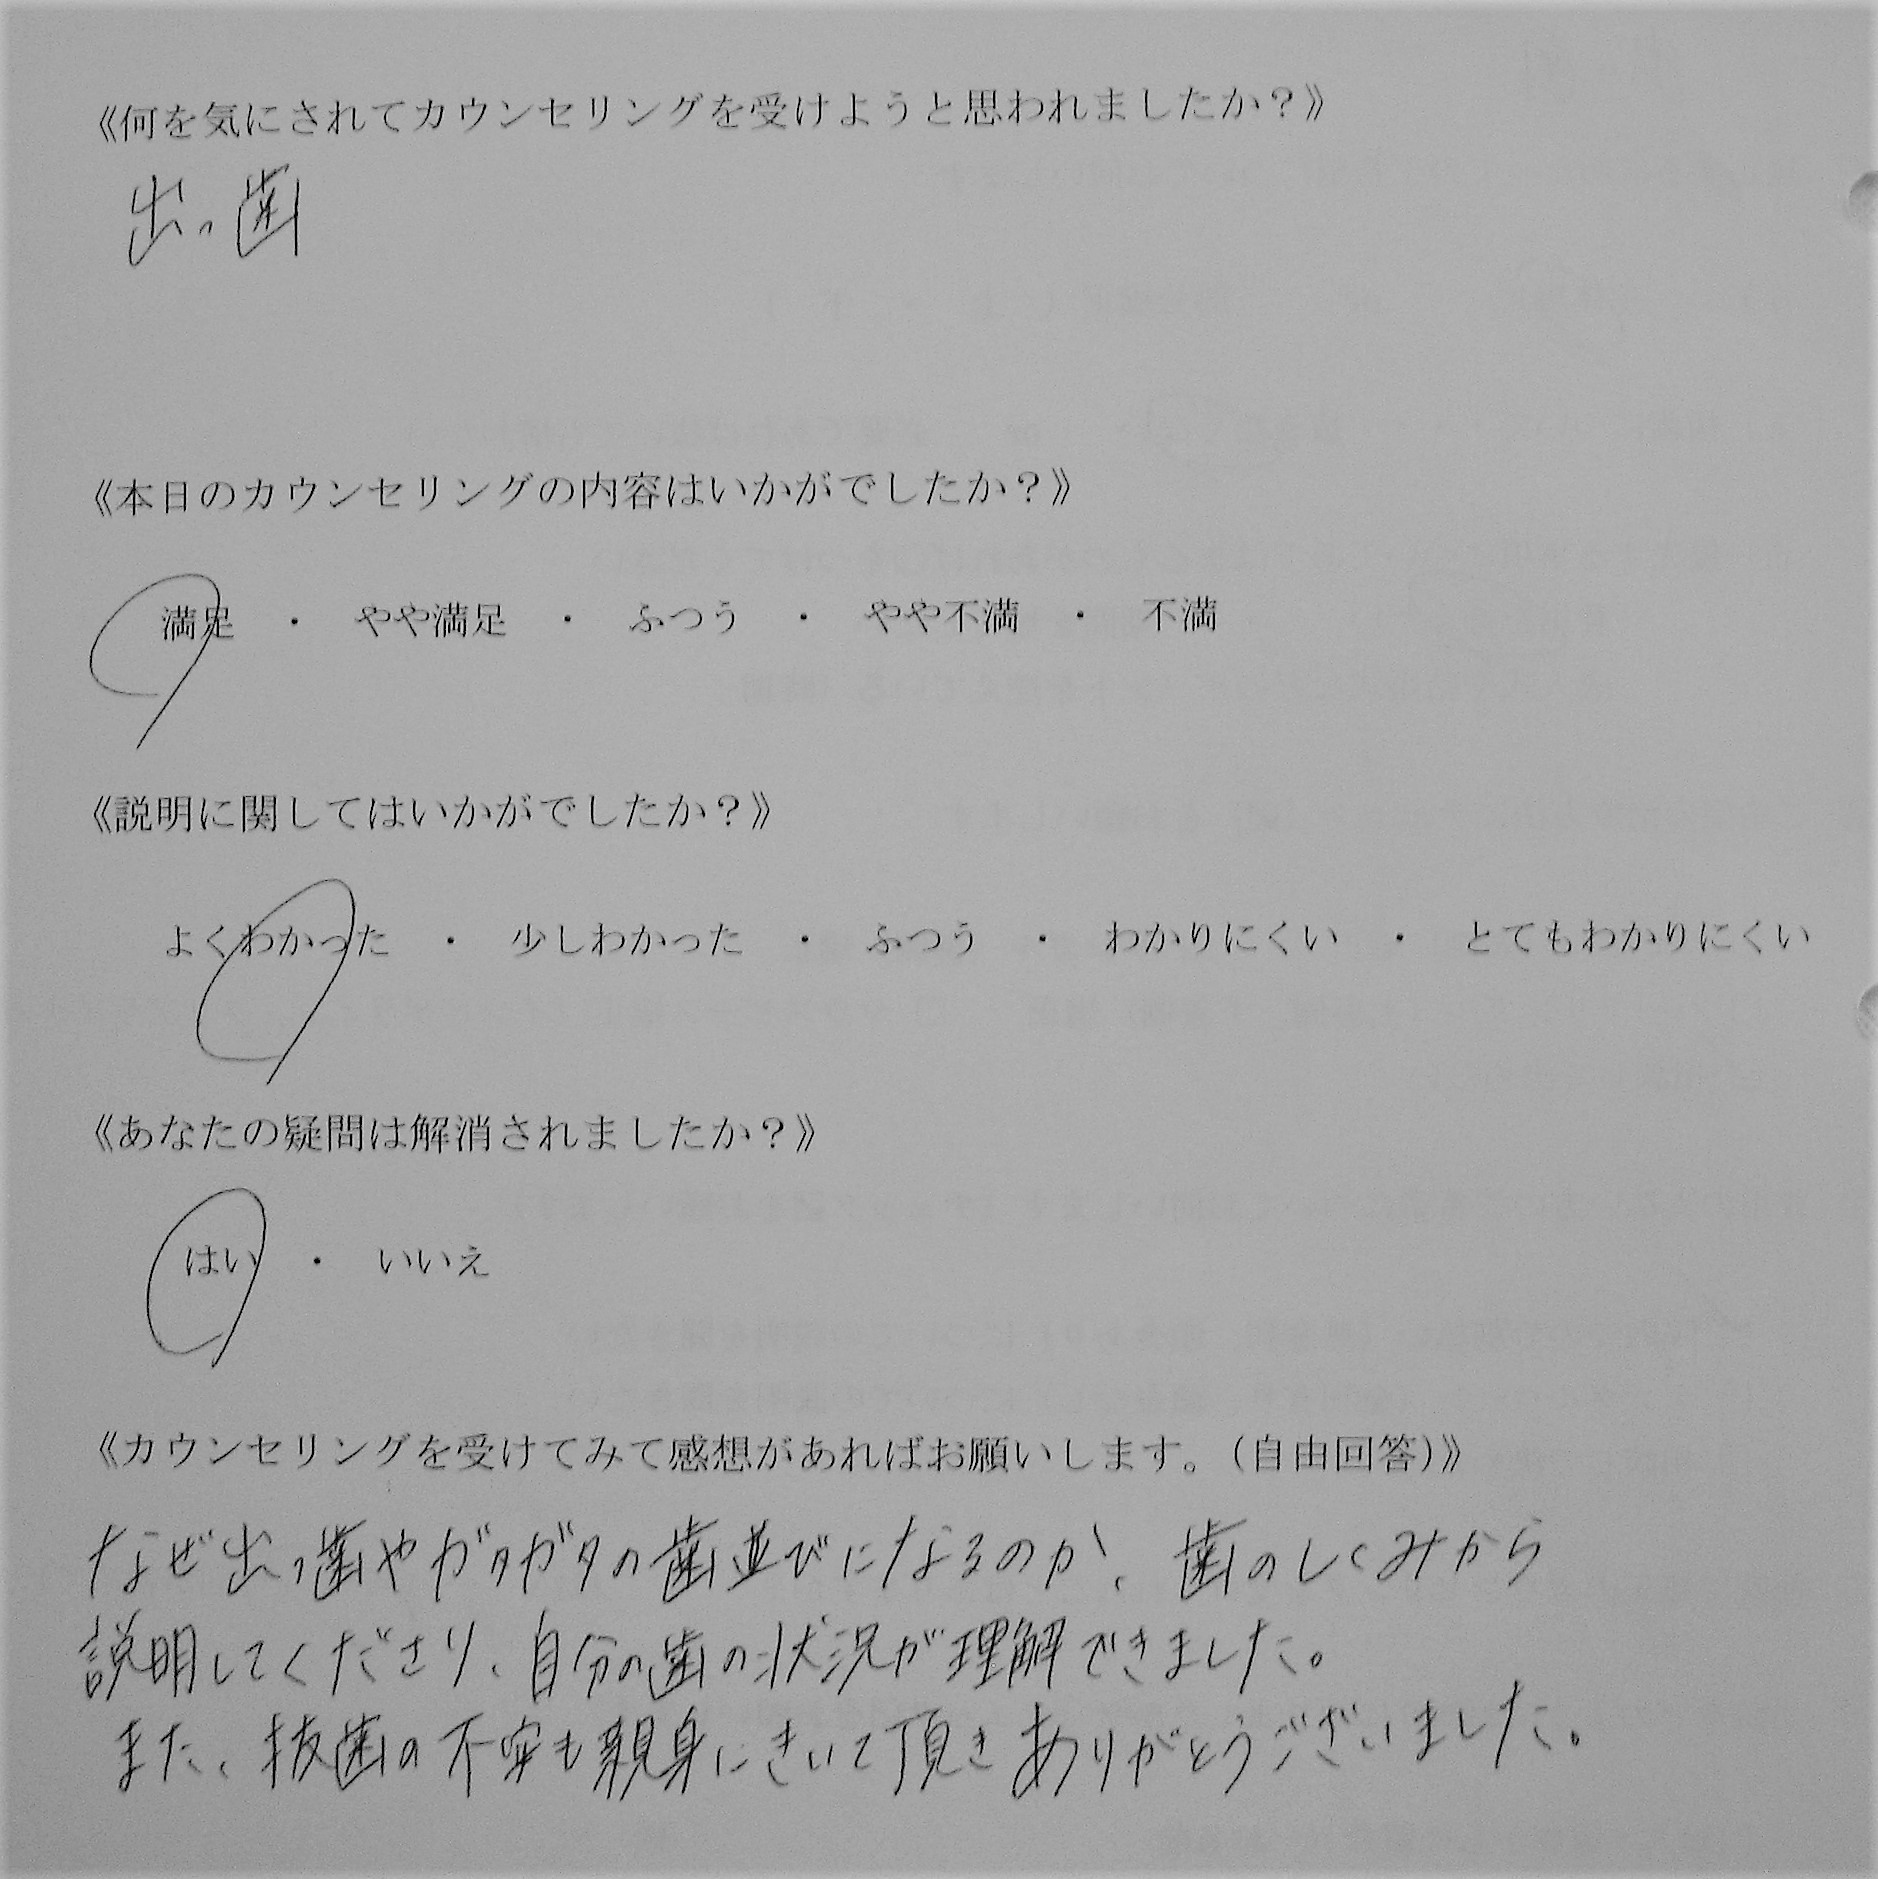 《何を気にされてカウンセリングを受けようと思われましたか？》
出っ歯
《本日のカウンセリングの内容はいかがでしたか？》
満足 ・ やや満足 ・ ふつう ・ やや不満 ・ 不満
《説明に関してはいかがでしたか？》
よくわかった ・ 少しわかった ・ ふつう ・ わかりにくい ・ とてもわかりにくい
《あなたの疑問は解消されましたか？》
はい ・ いいえ
《カウンセリングを受けてみて感想があればお願いします。（自由回答）》
なぜ出っ歯やガタガタの歯並びになるのか、歯のしくみから
説明してくださり、自分の歯の状況が理解できました。
また、抜歯の不安も親身にきいて頂きありがとうございました。